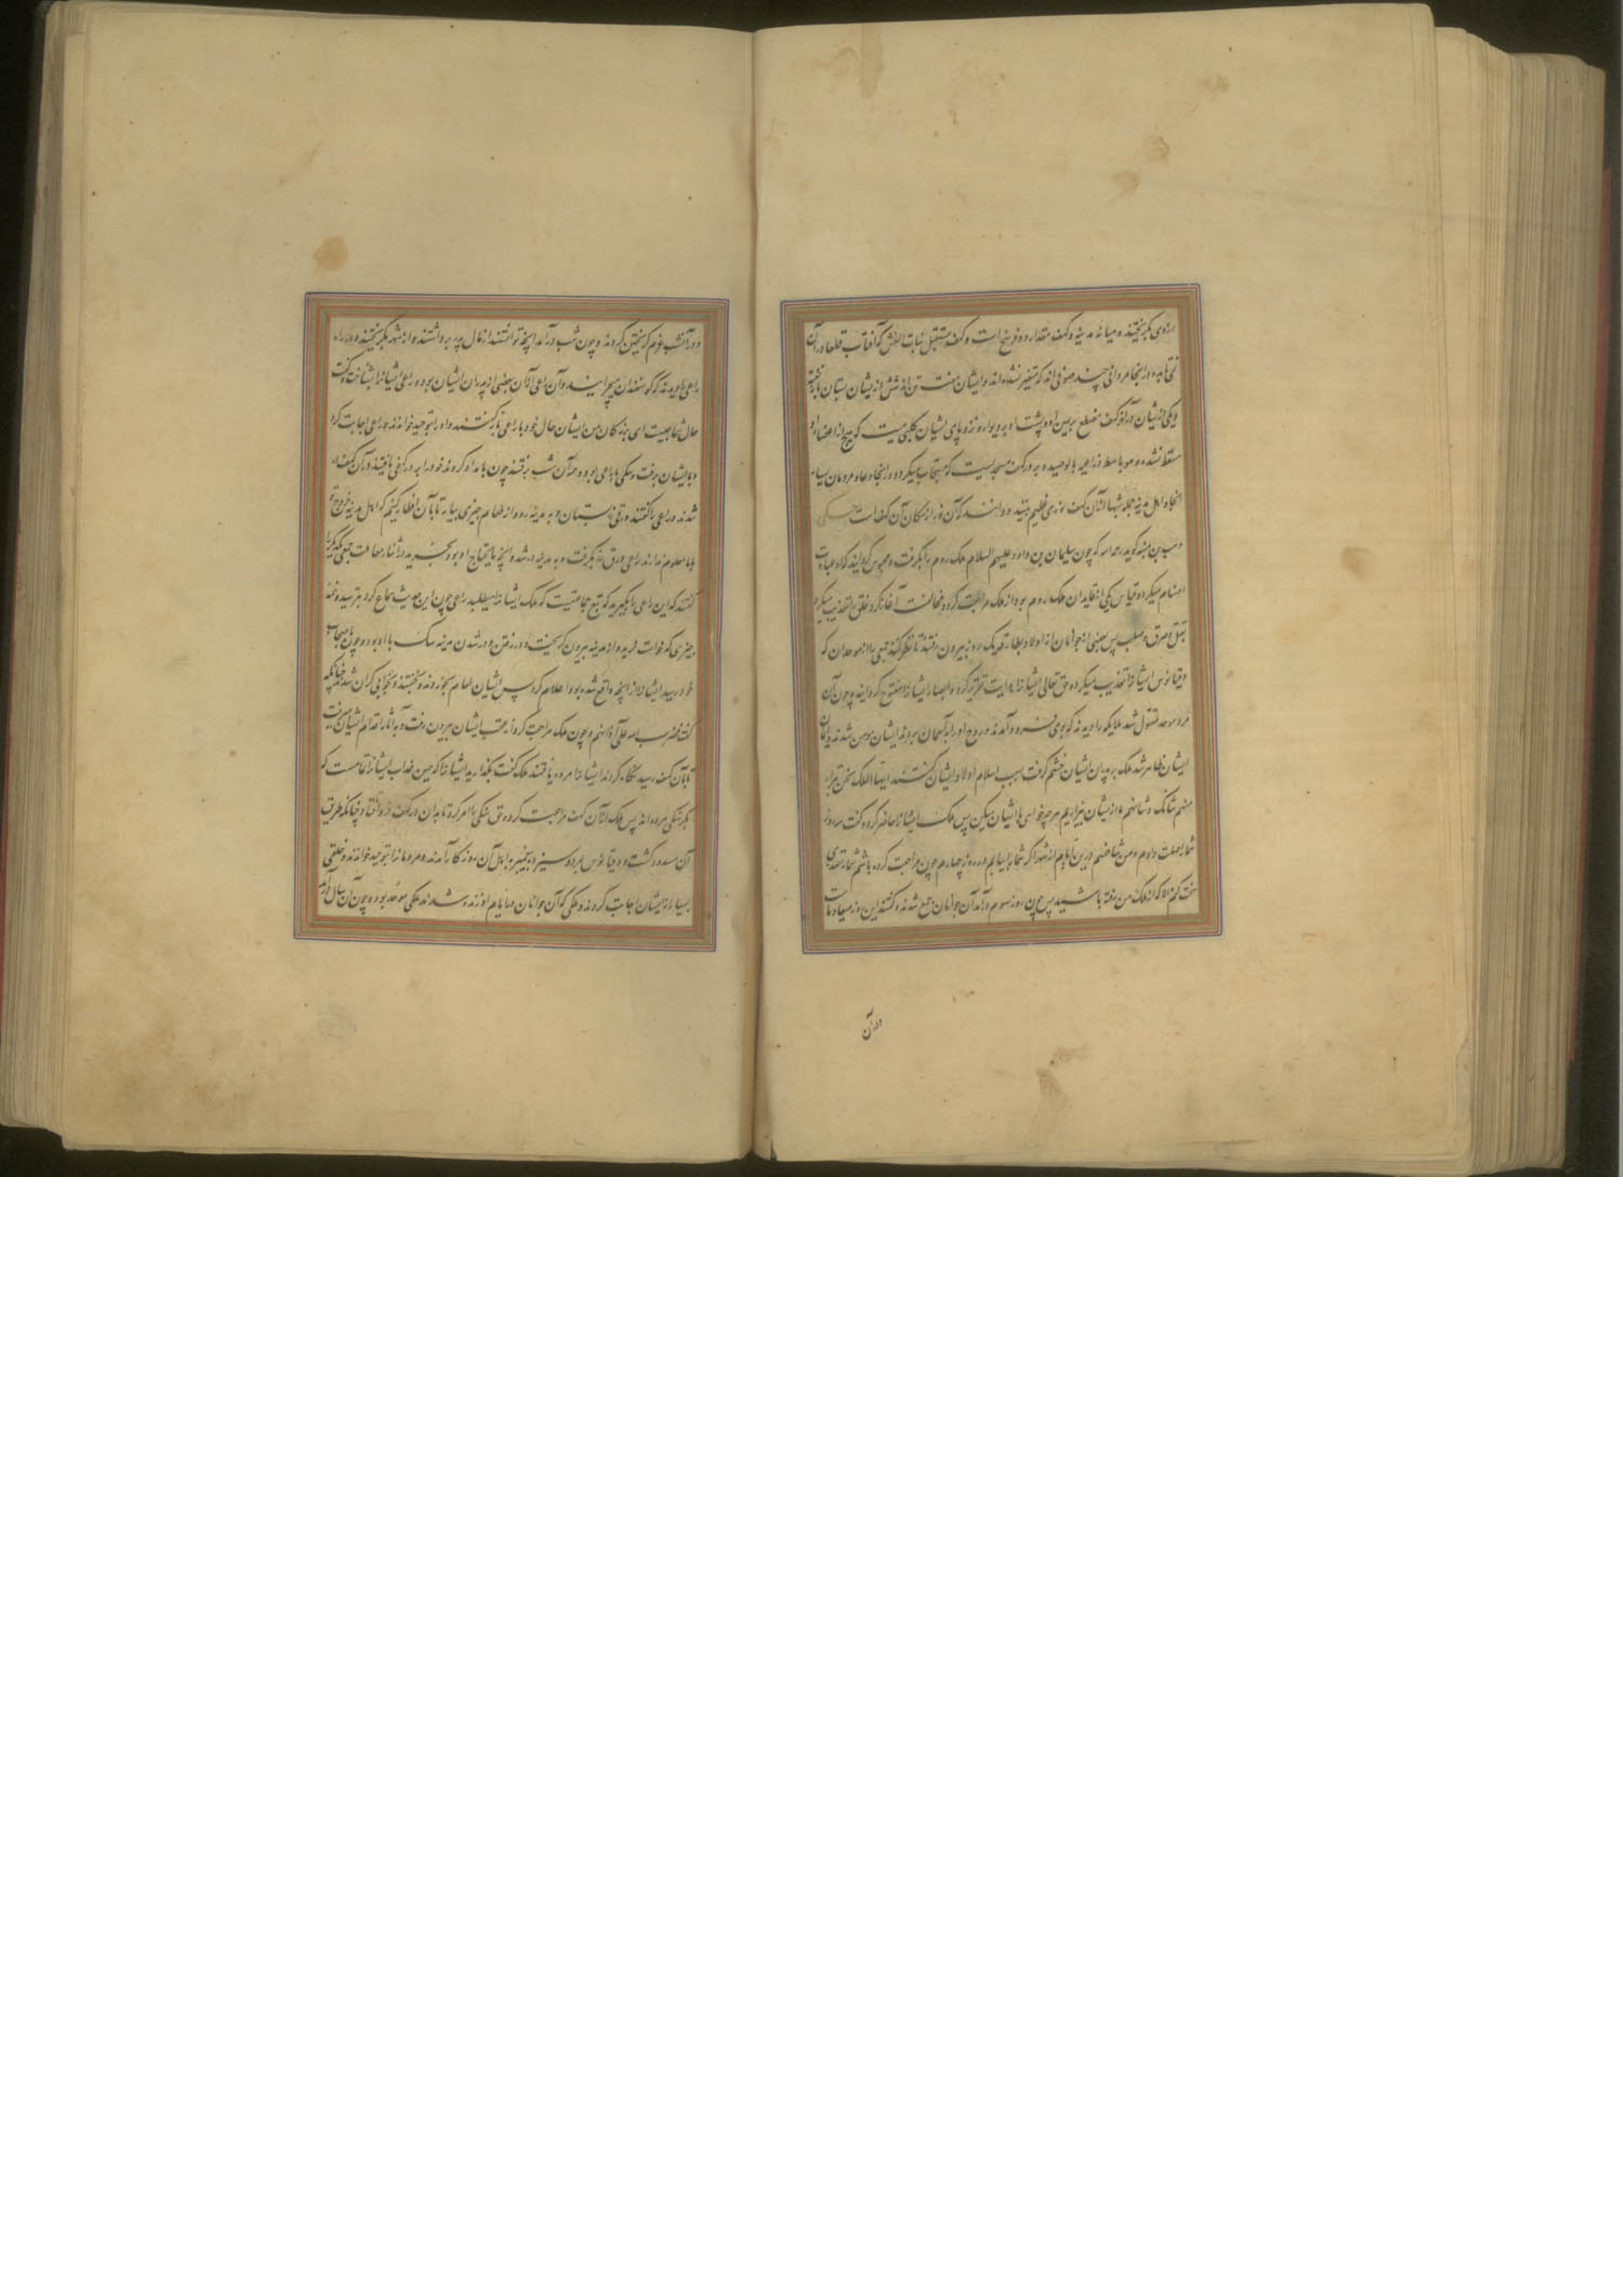 ازوی بگریختند و میانه مدینه و کهف مقدار دو فرسخ است و کهف مستقبل بنات النعش که آفتاب قطعا در آن
نمی تابد و در انجا مردانی چند مدفونند که متغیر نشده اند و ایشان هفت تن اند شش از یشان بستان باز خفته
و یکی از یشان در آخر کهف مضطجع بر یمین او و پشت او بر دیوار و نزد پای ایشان کلبی میت که هیچ از اعضاء او
سقط نشده و هو باسط ذراعیه بالوصید و بر در کهف مسجدیست که مستجاب میگردد در انجا دعاء و مردمان بسیار
انجا و اهل مدینه جمله شبها از آن کهف نوری عظیم بینند و دانند که آن نور از مکان آن کهف است
وهب بن منبه گوید رحمه الله که چون سلیمان بن داود علیهم السلام ملک روم را بگرفت و مجوس گردانید که او عبادت
اصنام میکرد دقیانوس یکی از قایدان ملک روم بود از ملک مراجعت کرد و مخالفت آغاز کرد و خلق را تعذیب میکرد
بقتل و حرق و صلب پس بعضی از جوانان از اولاد بطارقه یک روز بیرون رفتند تا نظر کنند جمعی را از موحدان که
دقیانوس ایشانرا تعذیب میکرد و حق تعالی ایشانرا هدایت تقدیر کرد و ابصار ایشانرا مفتوح گردانید و چون آن
مرد موحد مقتول شد ملایکه را دیدند که بوی فرود آمدند و روح او را بآسمان بردند ایشان مومن شدند و ایمان
ایشان ظاهر شد ملک بر پدران ایشان خشم گرفت بسبب اسلام اولاد ایشان گفتند ایها الملک نحن براء
منهم شانک و شانهم ما از یشان بیزاریم هر چه خواهی با ایشان میکن پس ملک ایشانرا حاضر کرد و گفت سه روز
شما را مهلت دادم و من شاخصم درین ایام از شهر اگر شما را بیابم در روز چهارم چون مراجعت کرده باشم شما را تعذیبی
سخت کنم الا که از ملک من رفته باشید پس چون روز سوم درآمد آن جوانان جمع شدند و گفتند این روز میعاد ماست
در آن
و در آنشب عزم گریختن کردند و چون شب درآمد آنچه توانستند از مال پدر برداشتند و از شهر بگریختند و در راه
راعی را دیدند که گوسفندان میچرانید و آن راعی از آن بعضی از پدران ایشان بود و راعی ایشانرا بشناخت و گفت
حال شما چیست ای بزرگان من ایشان حال خود با راعی باز گفتند و او را بتوحید خواندند و راعی اجابت کرد
و با ایشان برفت و سگی با راعی بود و همه آن شب برفتند چون بامداد کردند خود را بر در کهفی یافتند در آن کهف
شدند و راعی را گفتند ورقی بستان و به مدینه رو و از طعام چیزی بیار تا بآن افطار کنیم که اهل مدینه خروج تو
با ما معلوم ندارند راعی ورق بگرفت و به مدینه در شد و آنچه مایحتاج او بود بخرید در اثناء معاملت جمعی یکدیگر را
گفتند که این راعی را بگیرید که تبع جماعتیست که ملک ایشانرا میطلبد راعی چون این حدیث سماع کرد بترسید و نه
چیزی که خواست خرید و از مدینه بیرون گریخت و در رفتن و در شدن مدینه سگ با او بود و چون باصحاب
خود رسید ایشانرا از آنچه واقع شده بود اعلام کرد پس ایشان طعام بخوردند و بخفتند و بخوابی گران شدند چنانکه
گفت فضرب الله علی آذانهم و چون ملک مراجعت کرد از عقب ایشان بیرون رفت و به آثار اقدام ایشان می رفت
تا بآن کهف رسید نگاه کردند ایشانرا مرده یافتند ملک گفت بگذارید ایشانرا که همین عذاب ایشانرا تمامست که
بگرسنگی مرده اند پس ملک از آن کهف مراجعت کرد و حق سنگی را امر کرد تا بدان در کهف فرو افتاد چنانکه طریق
آن مسدود گشت و دقیانوس بمرد و سیزده پیغمبر به اهل آن روزگار آمدند و مردمانرا بتوحید خواندند و خلقی
بسیار از ایشان اجابت کردند و ملکی که آن جوانان در ایام او زنده شدند ملکی موحد بود و چون آن سال درآمد